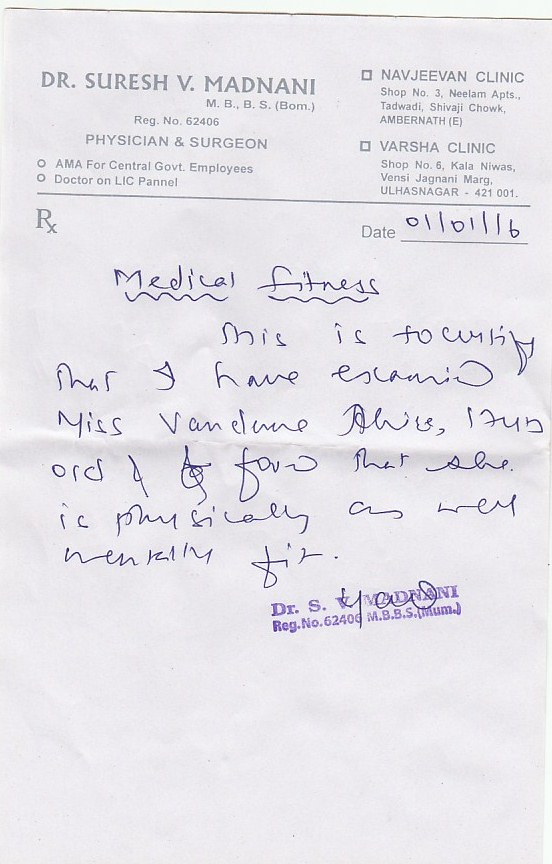 DR. SURESH V. MADNANI
M. B., B. S. (Bom.)
Reg. No. 62406
PHYSICIAN & SURGEON
AMA For Central Govt. Employees
Doctor on LIC Pannel
NAVJEEVAN CLINIC
Shop No. 3, Neelam Apts.,
Tadwadi, Shivaji Chowk,
AMBERNATH (E)
VARSHA CLINIC
Shop No. 6, Kala Niwas,
Vensi Jagnani Marg,
ULHASNAGAR - 421 001.
Rx
Date 01/01/16
Medical Fitness
This is to certify
that I have examin
Miss Vandana
old & found that she
is physically as well
mentally fit.
Dr. S. V. MADNANI
Reg.No.62406 M.B.B.S.(Mum.)